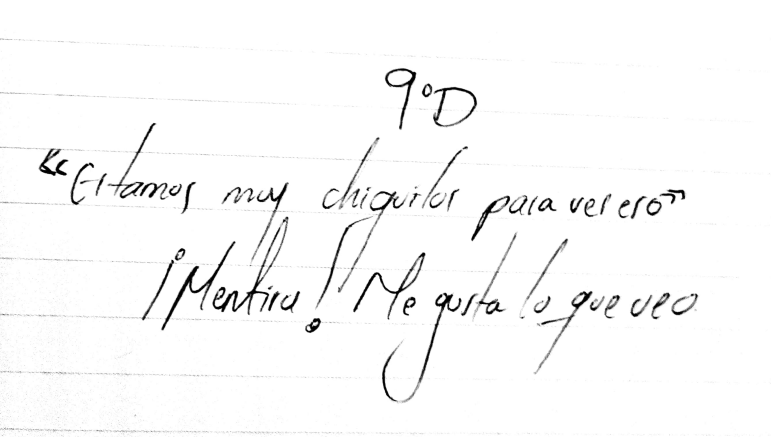 9°D
"Estamos muy chiquitos para ver eso"
¡Mentira! Me gusta lo que veo